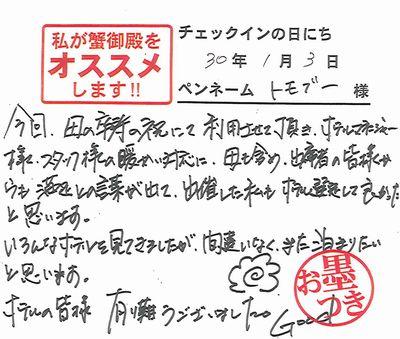 私が蟹御殿を
オススメ
します!!
チェックインの日にち
30年 1月 3日
ペンネーム トモブー 様
今回、母の卒寿の祝にて利用させて頂き、ホテルマネージャー
様、スタッフ様の暖かい対応に、母も含め、出席者の皆様か
らも満足との言葉が出て、出催した私もホテル選定して良かった
と思います。
いろんなホテルを見てきましたが、間違いなく、また泊まりたい
と思います。
ホテルの皆様 有り難うございました。 Good
お墨つき